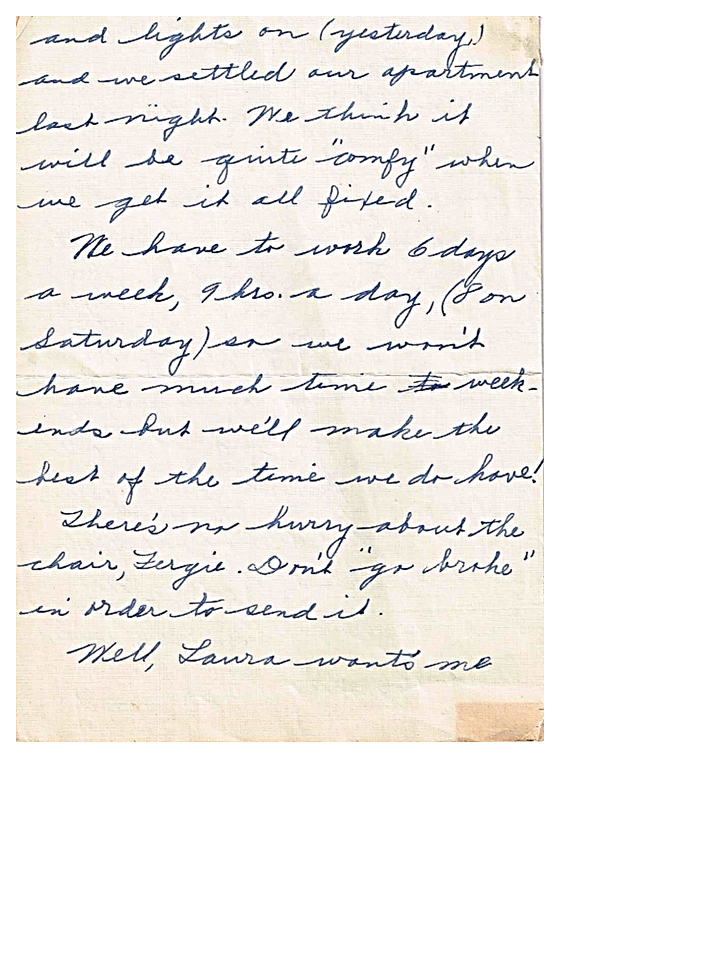 and lights on (yesterday,)
and we settled our apartment
last night. We think it
will be quite "comfy" when
we get it all fixed.
We have to work 6 days
a week, 9 hrs. a day, (8 on
Saturday) so we won't
have much time to week-
ends but we'll make the
best of the time we do have!
There's no hurry about the
chair, Fergie. Don't "go broke"
in order to send it.
Well, Laura wants me